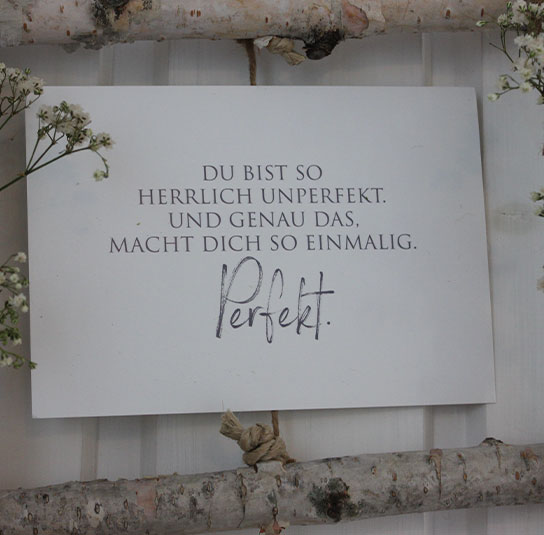 DU BIST SO
HERRLICH UNPERFEKT.
UND GENAU DAS,
MACHT DICH SO EINMALIG.
Perfekt.